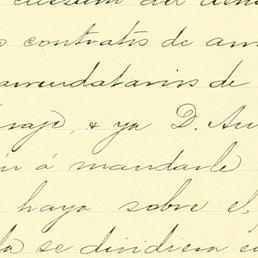 contratos de arr
arrendatarios de
raje, & ya D. Au
á mandarle
haya sobre el
la se dividiera en